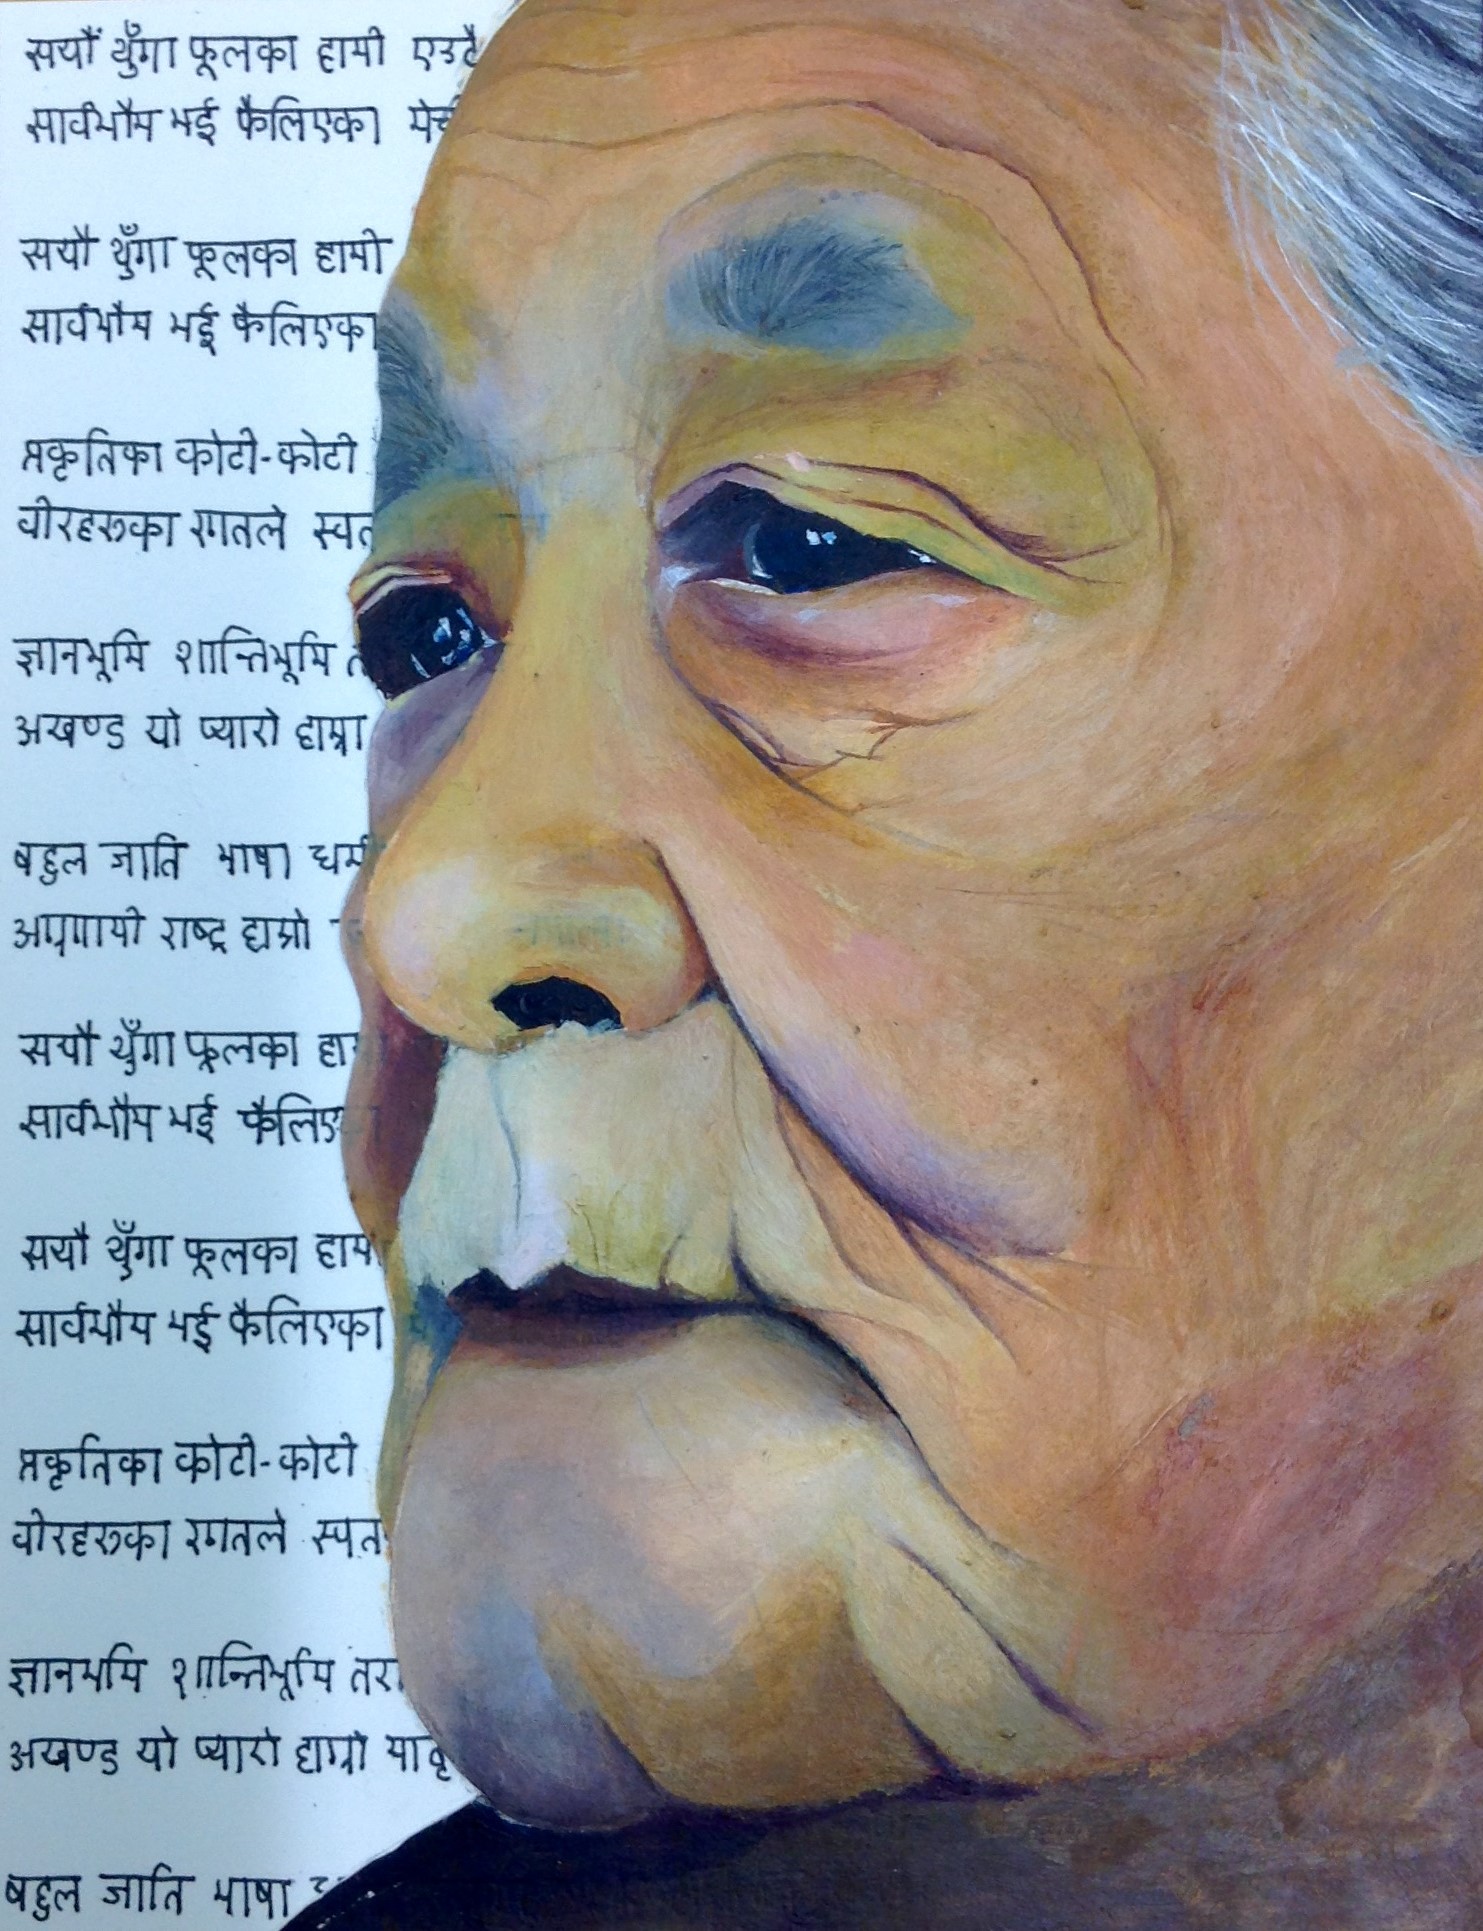 सयौँ थुँगा फूलका हामी एउटै
सार्वभौम भई फैलिएका
सयौ थुँगा फूलका हामी
सार्वभौम भई फैलिएका
प्रकृतिका कोटी-कोटी
वीरहरुका रगतले
ज्ञानभूमि शान्तिभूमि
अखण्ड यो प्यारो हाम्रा
बहुल जाति भाषा धर्म
अग्रगामी राष्ट्र हाम्रो
सयौ थुँगा फूलका
सार्वभौम भई
सयौ थुँगा फूलका हामी
सार्वभौम भई फैलिएका
प्रकृतिका कोटी-कोटी
वीरहरुका रगतले
ज्ञानभूमि शान्तिभूमि
अखण्ड यो प्यारो हाम्रो
बहुल जाति भाषा